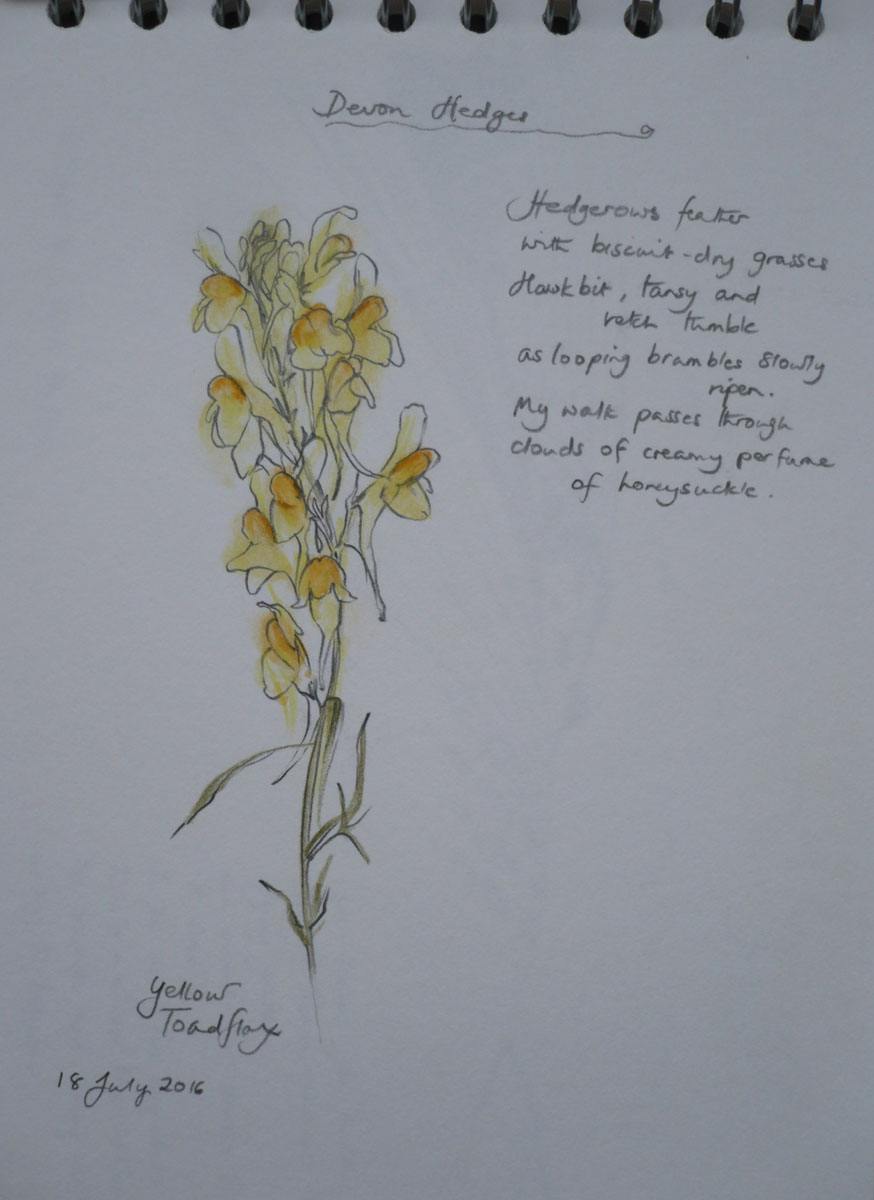 Devon Hedges
Hedgerows feather
with biscuit-dry grasses
Hawkbit, tansy and
vetch tumble
as looping brambles slowly
ripen.
My walk passes through
clouds of creamy perfume
of honeysuckle.
Yellow
Toadflax
18 July 2016